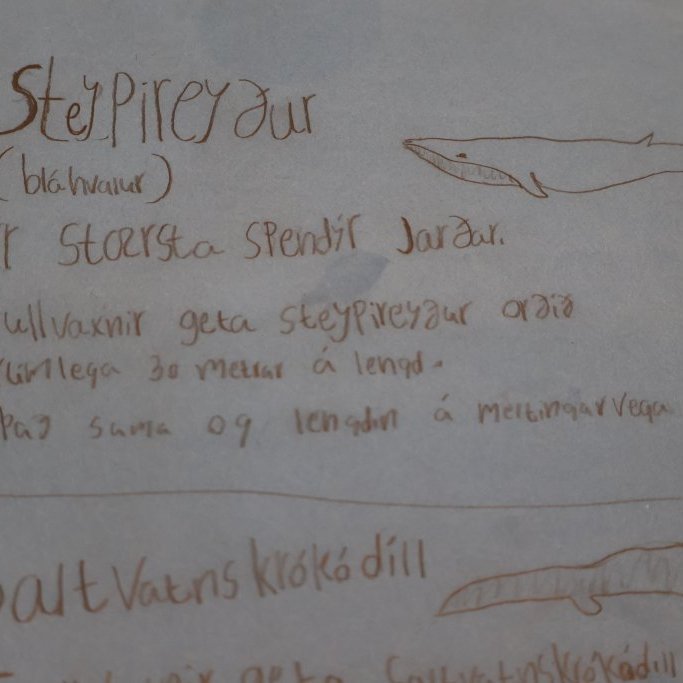 Steypireyður
(bláhvalur)
r Stærsta spendýr Jarðar.
ullvaxnir geta steypireyður orðið
lega 30 metrar á lengd.
það sama og lengdin á meltingarvega
altvatnskrókódíll
geta saltvatnskrókódíll